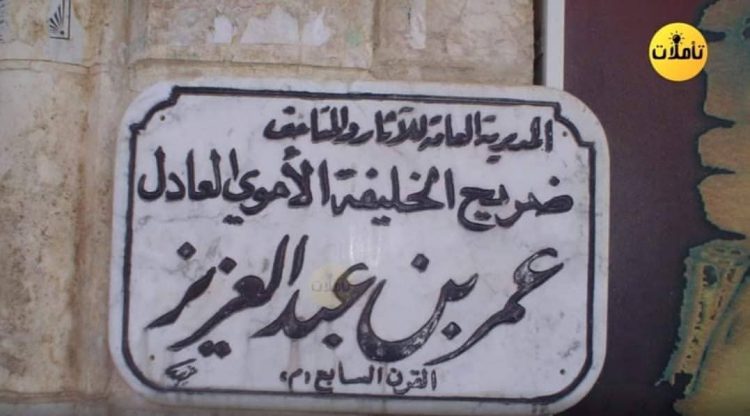 تأملات
المديرية العامة للآثار والمتاحف
ضريح الخليفة الأموي العادل
عمر بن عبد العزيز
تأملات
القرن السابع م،